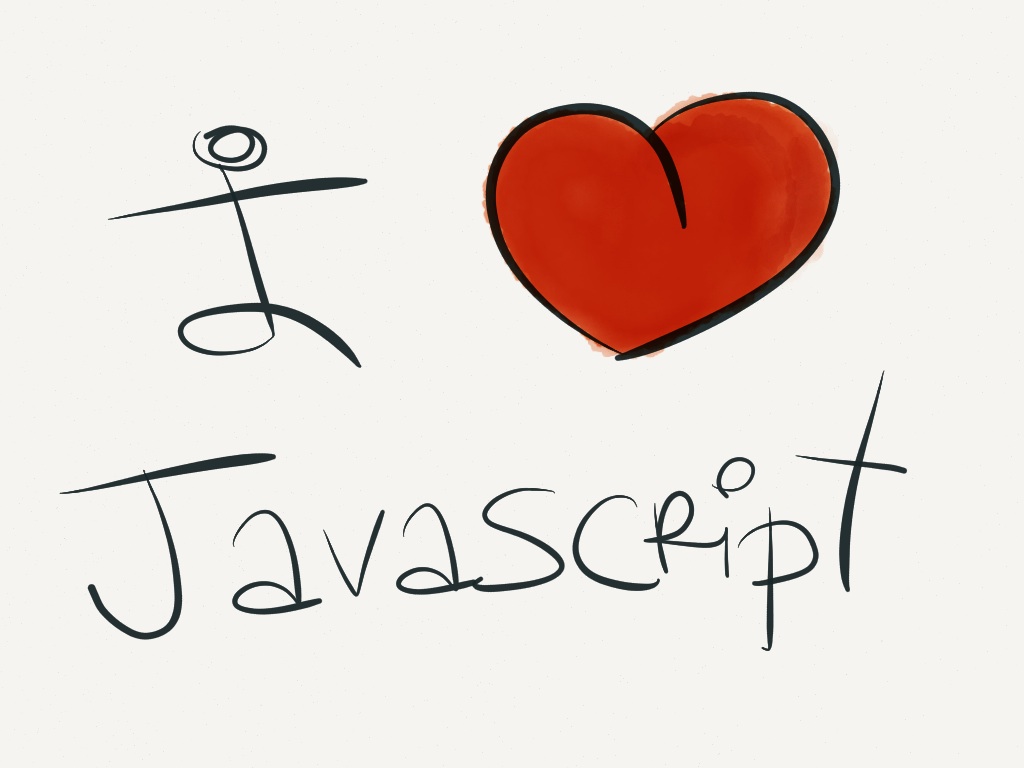 I ❤
Javascript